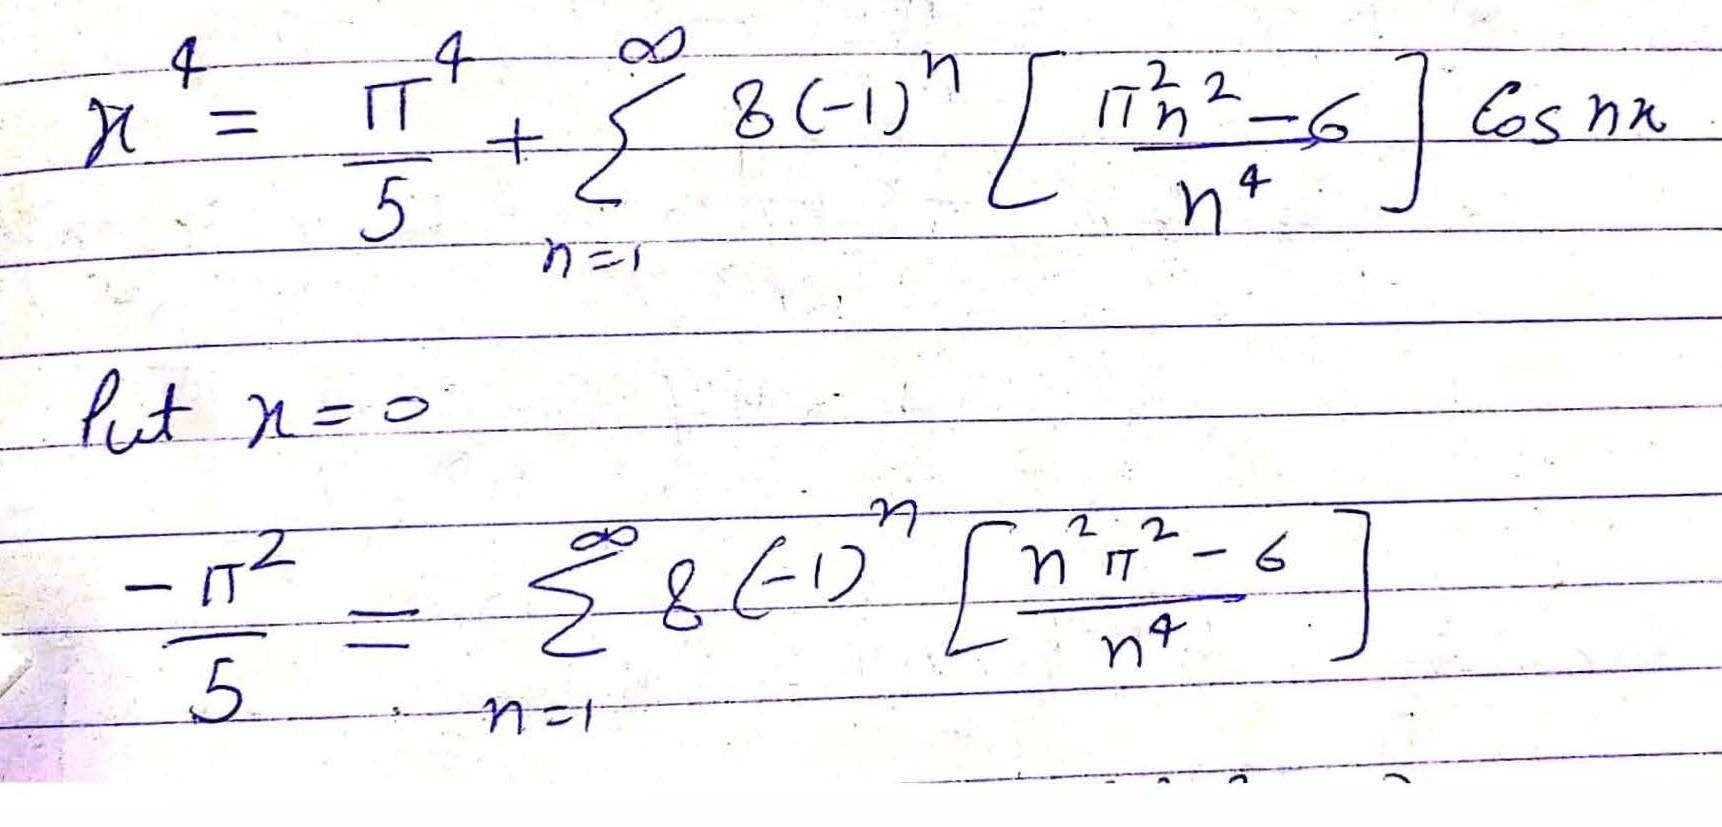 x⁴ = π⁴/5 + ∑_{n=1}^{∞} 8(-1)ⁿ [ (π²n² - 6)/n⁴ ] Cos nx
Put x = 0
-π²/5 = ∑_{n=1}^{∞} 8(-1)ⁿ [ (n²π² - 6)/n⁴ ]